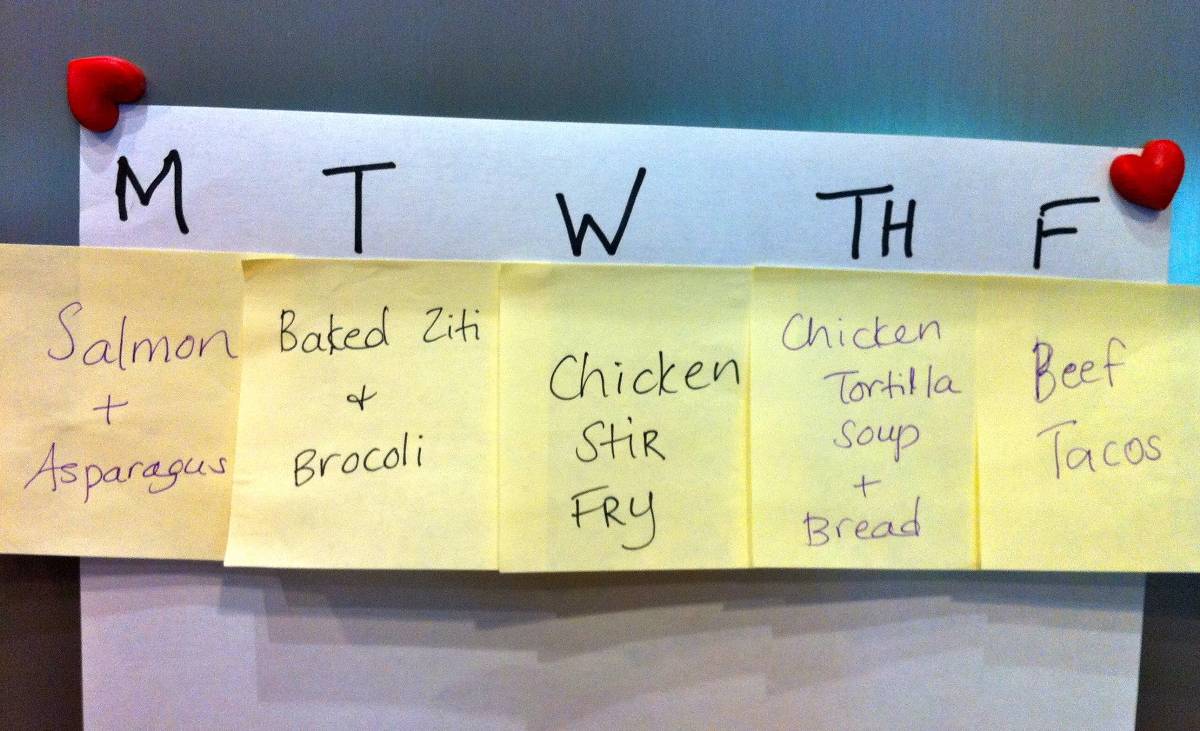 M T W TH F
Salmon
+
Asparagus
Baked Ziti
+
Brocoli
Chicken
Stir
Fry
Chicken
Tortilla
Soup
+
Bread
Beef
Tacos